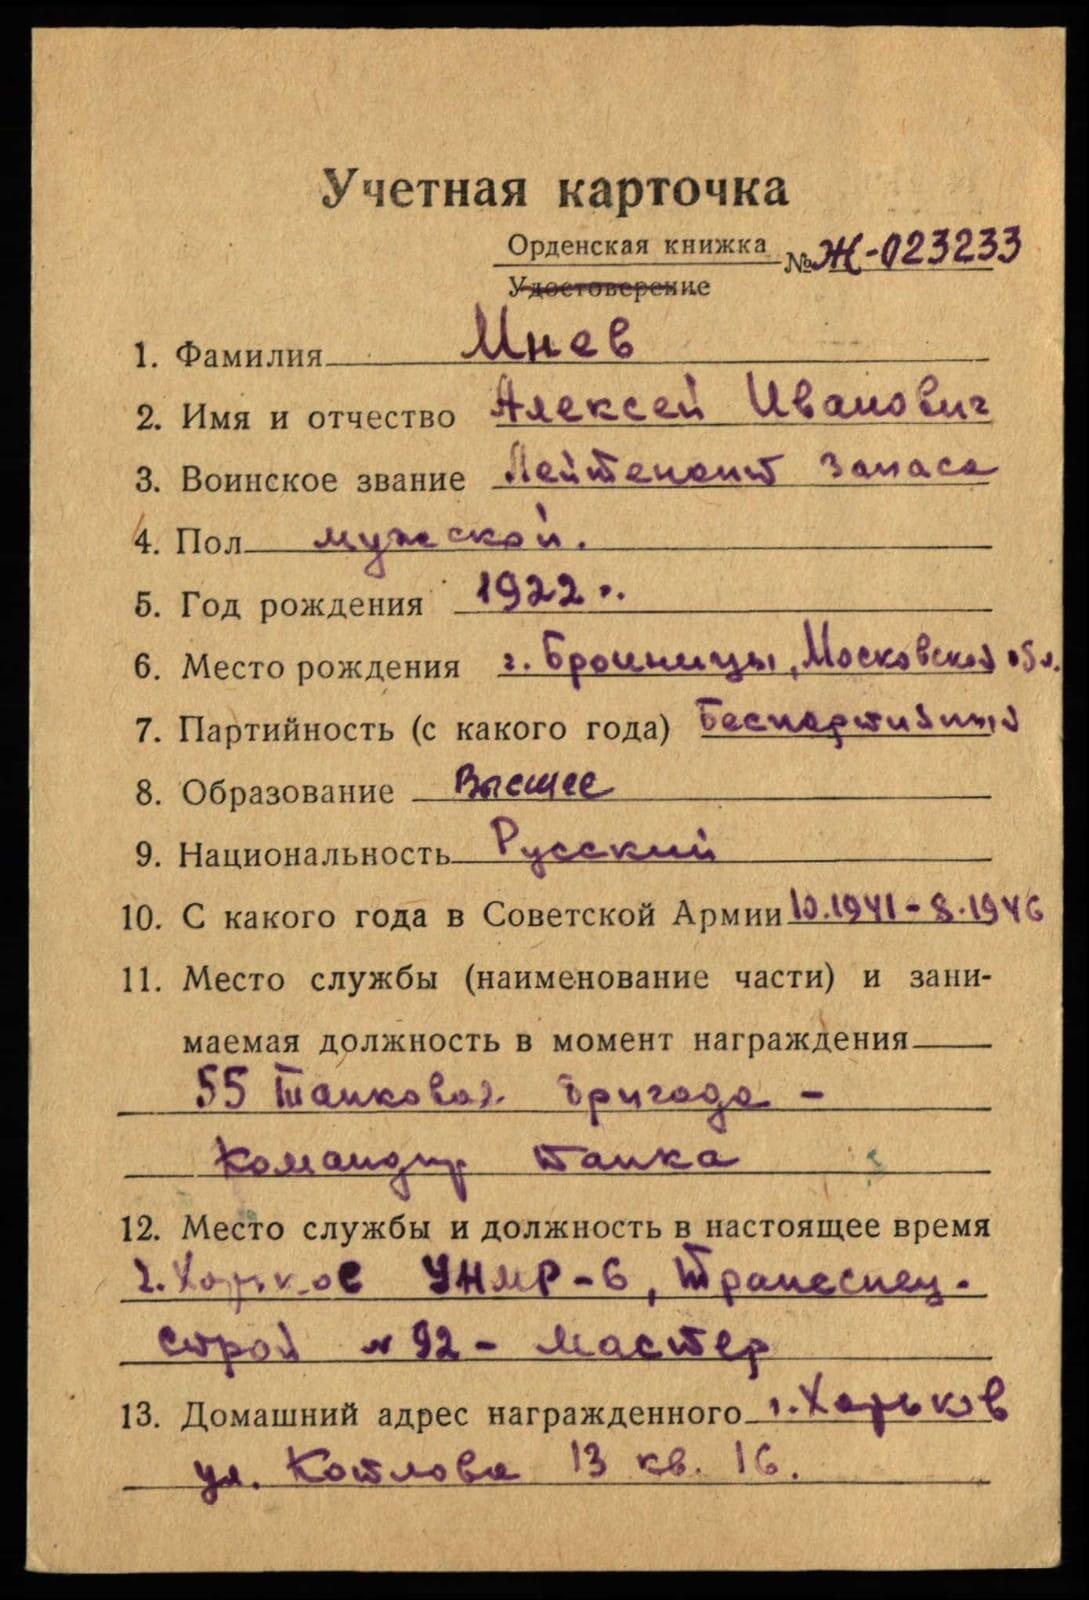 Учетная карточка
Орденская книжка № Ж-023233
Удостоверение
1. Фамилия Мнев
2. Имя и отчество Алексей Иванович
3. Воинское звание Лейтенант запаса
4. Пол мужской.
5. Год рождения 1922 г.
6. Место рождения г. Бронницы, Московской обл.
7. Партийность (с какого года) Беспартийный
8. Образование Высшее
9. Национальность Русский
10. С какого года в Советской Армии 10.1941-8.1946
11. Место службы (наименование части) и зани-
маемая должность в момент награждения
55 танковая бригада -
Командир танка
12. Место службы и должность в настоящее время
г. Харьков УНМР-6, Трансспец-
строй № 92 - мастер
13. Домашний адрес награжденного г. Харьков
ул. Котлова 13 кв. 16.